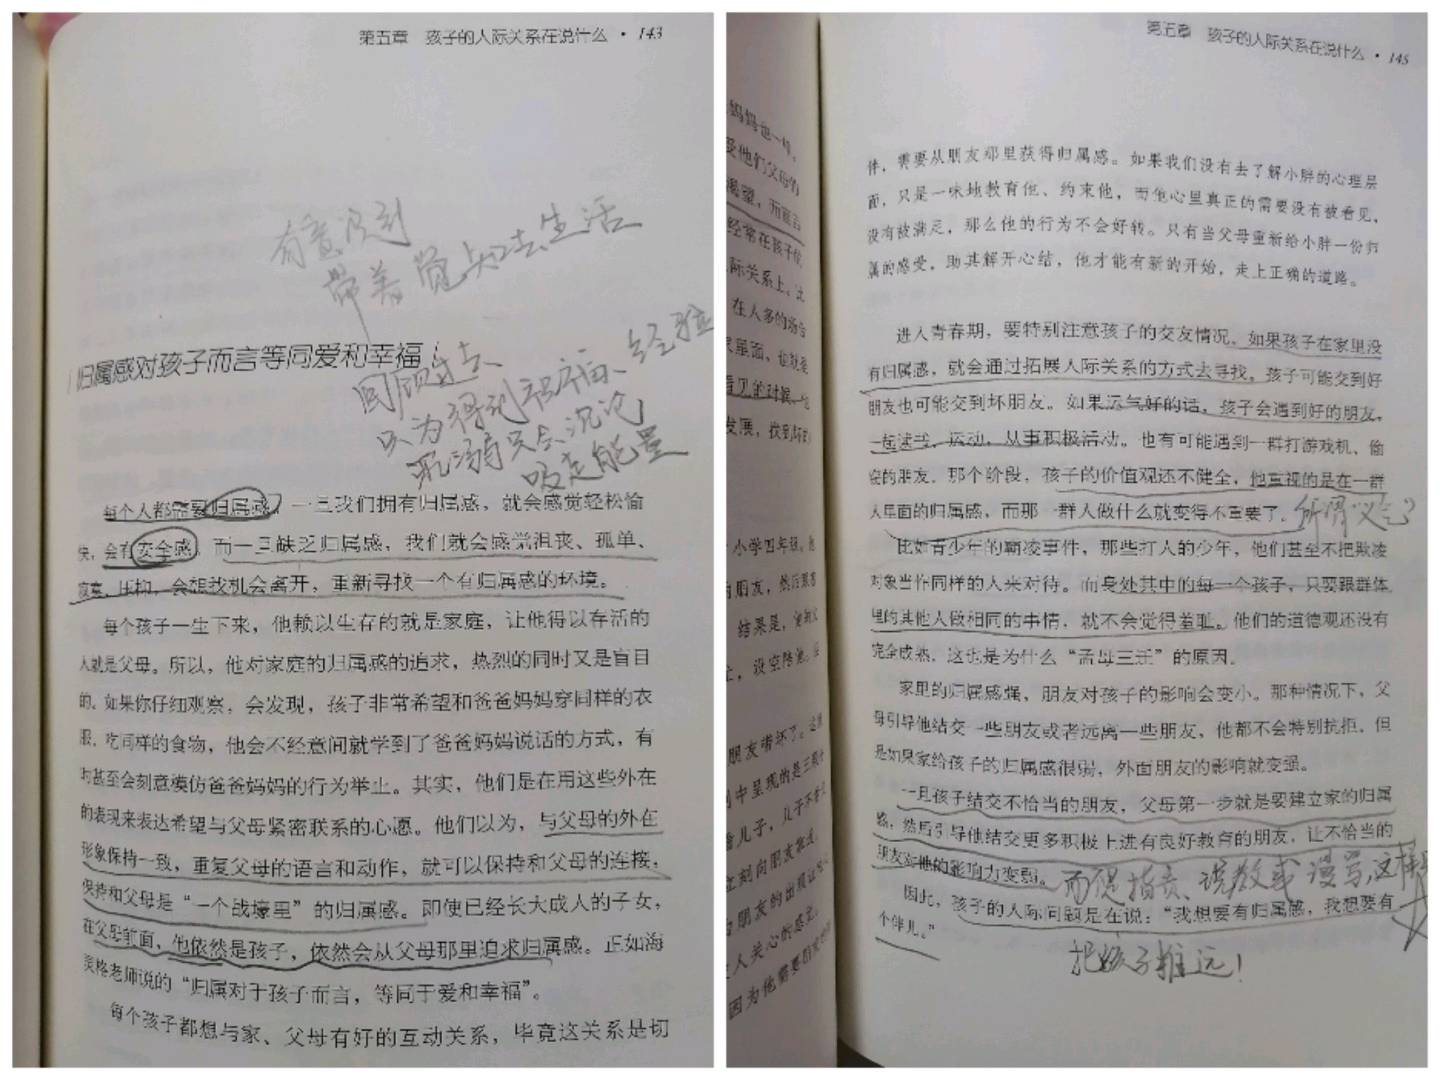 第五章 孩子的人际关系在说什么 · 143
有意识
带着觉知去生活
归属感对孩子而言等同爱和幸福
回顾过去
以为得到祝福、经验
耽溺只会沉沦
吸走能量
每个人都需要归属感，一旦我们拥有归属感，就会感觉轻松愉
快，会有安全感，而一旦缺乏归属感，我们就会感觉沮丧、孤单、
寂寞、压抑，会想找机会离开，重新寻找一个有归属感的环境。
每个孩子一生下来，他赖以生存的就是家庭，让他得以存活的
人就是父母。所以，他对家庭的归属感的追求，热烈的同时又是盲目
的。如果你仔细观察，会发现，孩子非常希望和爸爸妈妈穿同样的衣
服，吃同样的食物，他会不经意间就学到了爸爸妈妈说话的方式，有
时甚至会刻意模仿爸爸妈妈的行为举止。其实，他们是在用这些外在
的表现来表达希望与父母紧密联系的心愿。他们以为，与父母的外在
形象保持一致，重复父母的语言和动作，就可以保持和父母的连接，
保持和父母是“一个战壕里”的归属感。即使已经长大成人的子女，
在父母前面，他依然是孩子，依然会从父母那里追求归属感。正如海
灵格老师说的“归属对于孩子而言，等同于爱和幸福”。
每个孩子都想与家、父母有好的互动关系，毕竟这关系是切
第五章 孩子的人际关系在说什么 · 145
妈妈也一样，
受他们父母的
渴望，而
经常在孩子
际关系上。比
在人多的场合
家里面，也就是
看见的时候，
发展，找到
小学四年级，
朋友，然后跟着
结果是，
没空陪他，
朋友带坏了。
中呈现的是三
儿子，儿子不
立刻向朋友靠近，
朋友的出现
人关心的感觉，
因为他需要朋友
伴，需要从朋友那里获得归属感。如果我们没有去了解小胖的心理层
面，只是一味地教育他、约束他，而他心里真正的需要没有被看见，
没有被满足，那么他的行为不会好转。只有当父母重新给小胖一份归
属的感受，助其解开心结，他才能有新的开始，走上正确的道路。
进入青春期，要特别注意孩子的交友情况。如果孩子在家里没
有归属感，就会通过拓展人际关系的方式去寻找。孩子可能交到好
朋友也可能交到坏朋友。如果运气好的话，孩子会遇到好的朋友，
一起读书、运动，从事积极活动。也有可能遇到一群打游戏机、偷
窃的朋友。那个阶段，孩子的价值观还不健全，他重视的是在一群
人里面的归属感，而那一群人做什么就变得不重要了。所谓“义气”？
比如青少年的霸凌事件，那些打人的少年，他们甚至不把欺凌
对象当作同样的人来对待。而身处其中的每一个孩子，只要跟群体
里的其他人做相同的事情，就不会觉得羞耻。他们的道德观还没有
完全成熟，这也是为什么“孟母三迁”的原因。
家里的归属感强，朋友对孩子的影响会变小。那种情况下，父
母引导他结交一些朋友或者远离一些朋友，他都不会特别抗拒，但
是如果家给孩子的归属感很弱，外面朋友的影响就变强。
一旦孩子结交不恰当的朋友，父母第一步就是要建立家的归属
感，然后引导他结交更多积极上进有良好教育的朋友，让不恰当的
朋友对他的影响力变弱。而促指责、说教或谩骂，这样
因此，孩子的人际问题是在说：“我想要有归属感，我想要有
个伴儿。”
把孩子推远！